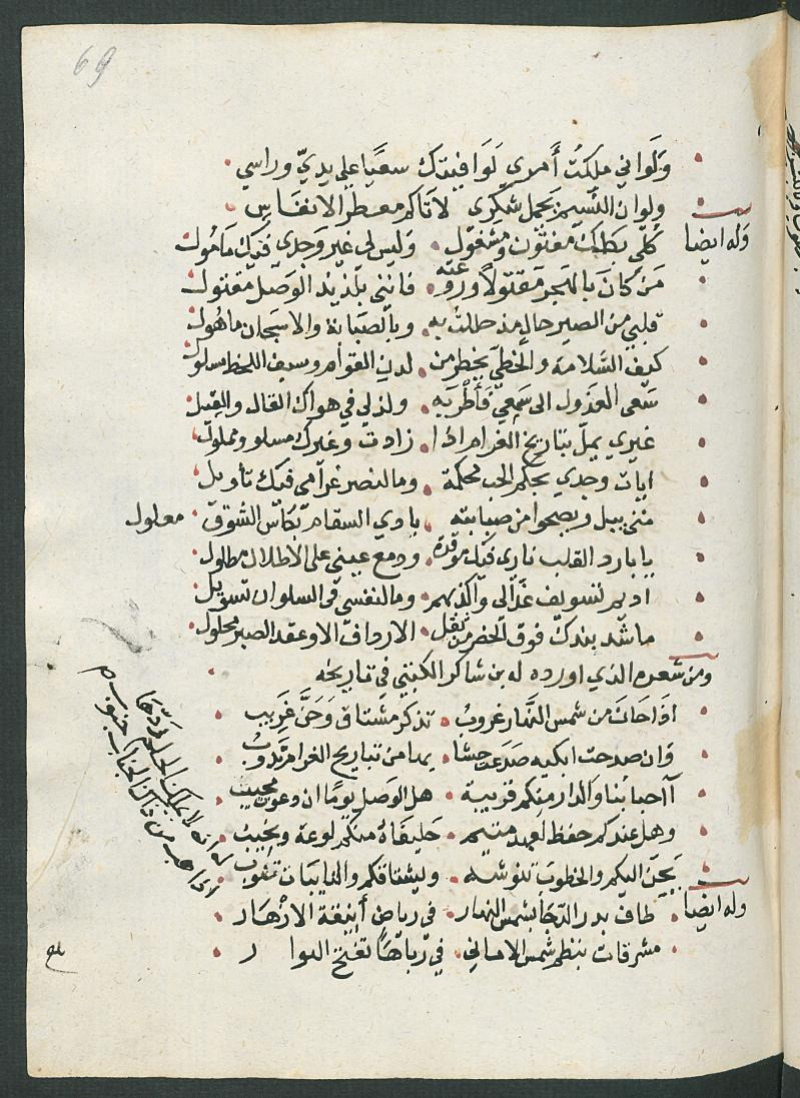 69
ولواني ملكت أمري لوافيتك سعيا على يدي وراسي
ولو ان النسيم يحمل شكري لاتاكم معطر الانفاس
وله ايضا
كلي بكلك مفتون ومشغول وليس لي غير وجدي فيك مامول
من كان بالهجر مقتولا وروعته فانني بلذيذ الوصل مقتول
قلبي من الصبر خال مذ حللت به وبالصبابة والاشجان ماهول
كيف السلامة والخطي يخطر من لدن القوام وسيف اللحظ مسلول
سعى العذول الى سمعي فأطربه ولذ لي في هواك القال والقيل
غيري يمل تباريخ الغرام اذا زادت وغيرك مسلو ومملول
ايات وجدي بحكم الحب محكمة وما لنصر غرامي فيك تأويل
متى يبل ويصحوا من صبابته باوي السقام بكاس الشوق معلول
يا بارد القلب ناري فيك موقدة ودمع عيني على الاطلال مطلول
اديم تسويف عذالي وأكذبهم وما لنفسي في السلوان تسويل
ما شد بندك فوق الخصر من ثقل الارداف الا وعقد الصبر محلول
ومن شعره الذي اورده له بن شاكر الكتبتي في تاريخه
اذا حان من شمس النهار غروب تذكر مشتاق وحن غريب
وان صدحت ايكيه صدعت حشا بها من تباريح الغرام ندوب
آاحبابنا والدار منكم قريبة هل الوصل يوما ان دعوت مجيب
وهل عندكم حفظ لعهد متيم حليفاه منكم لوعة ونحيب
يحن اليكم والخطوب تنوشه ويشتاقكم والنايبات تنوب
وله ايضا
طاف بدر الدجا بشمس النهار في رياض أنيقة الازهار
مشرقات بنظم شمس الاماني في رباها تفتح النوار